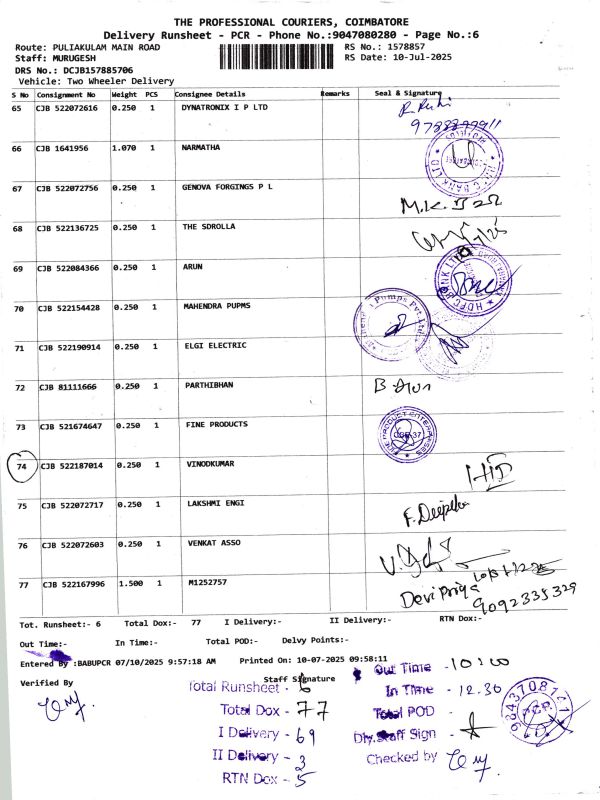 THE PROFESSIONAL COURIERS, COIMBATORE
Delivery Runsheet - PCR - Phone No.:9047080280 - Page No.:6
Route: PULIAKULAM MAIN ROAD RS No.: 1578857
Staff: MURUGESH RS Date: 10-Jul-2025
DRS No.: DCJB157885706
Vehicle: Two Wheeler Delivery
S No Consignment No Weight PCS Consignee Details Remarks Seal & Signature
65 CJB 522072616 0.250 1 DYNATRONIX I P LTD
66 CJB 1641956 1.070 1 NARMATHA
67 CJB 522072756 0.250 1 GENOVA FORGINGS P L
68 CJB 522136725 0.250 1 THE SDROLLA
69 CJB 522084366 0.250 1 ARUN
HDFC BANK LTD
70 CJB 522154428 0.250 1 MAHENDRA PUPMS
Pumps Pvt. Ltd.
71 CJB 522190914 0.250 1 ELGI ELECTRIC
72 CJB 81111666 0.250 1 PARTHIBHAN
73 CJB 521674647 0.250 1 FINE PRODUCTS
74 CJB 522187014 0.250 1 VINODKUMAR
75 CJB 522072717 0.250 1 LAKSHMI ENGI F. Deepika
76 CJB 522072603 0.250 1 VENKAT ASSO
77 CJB 522167996 1.500 1 M1252757 Devi priya
9092335329
Tot. Runsheet:- 6 Total Dox:- 77 I Delivery:- II Delivery:- RTN Dox:-
Out Time:- In Time:- Total POD:- Delvy Points:-
Entered By :BABUPCR 07/10/2025 9:57:18 AM Printed On: 10-07-2025 09:58:11
Verified By Staff Signature
Out Time - 10:00
Total Runsheet - 6 In Time - 12.30
Total Dox - 77 Total POD -
I Delivery - 69 Dly. Staff Sign -
II Delivery - 3 Checked by
RTN Dox - 5